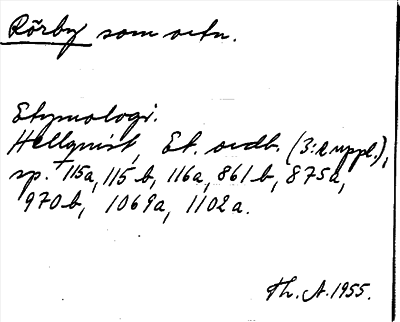 Rörby som ortn.
Etymologi.
Hellquist, Et. ordb. (3:e uppl.),
sp. + 115a, 115b, 116a, 861b, 875a,
970b, 1069a, 1102a.
Th. A. 1955.